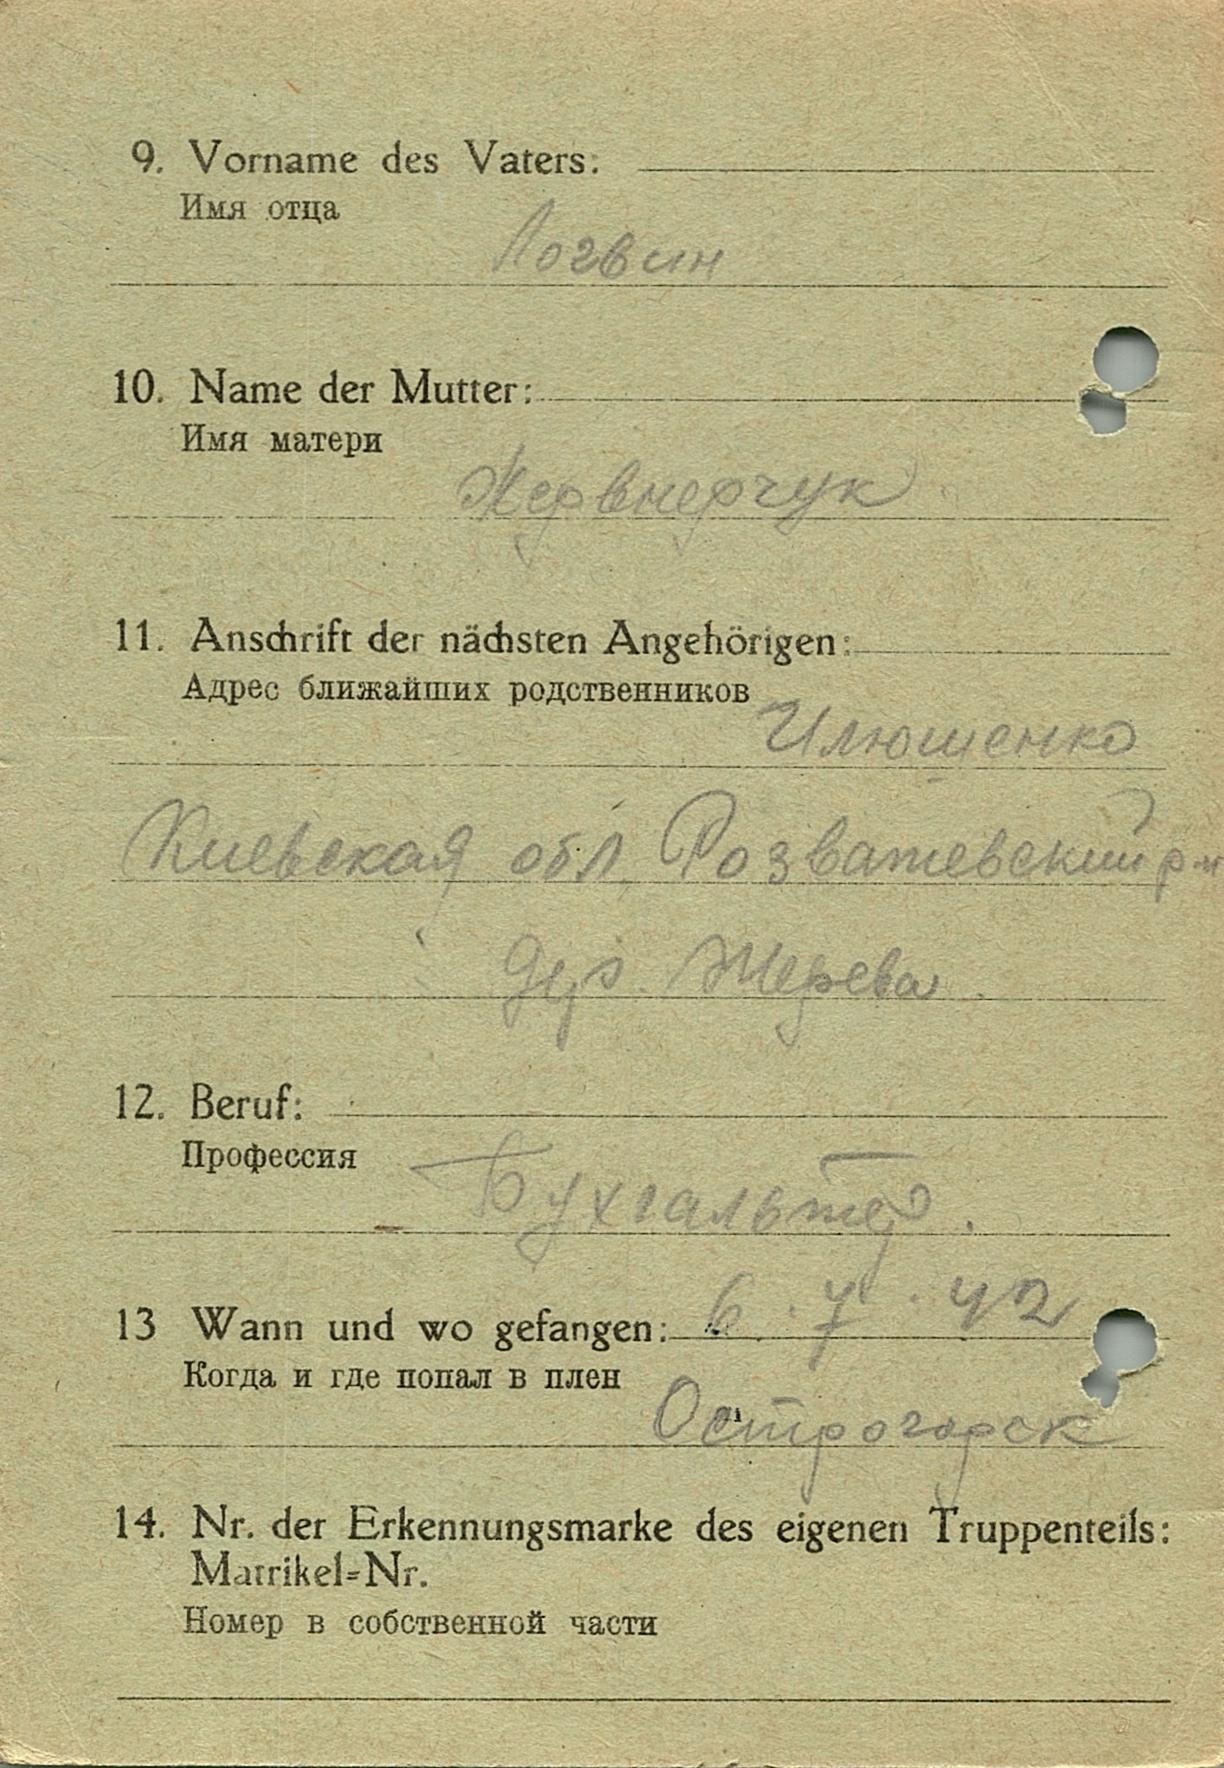 9. Vorname des Vaters:
Имя отца
Логвин
10. Name der Mutter:
Имя матери
11. Anschrift der nächsten Angehörigen:
Адрес ближайших родственников
Илюшенко
Киевская обл. Розважевский р-н
дер. Жерева
12. Beruf:
Профессия
Бухгальтер.
13 Wann und wo gefangen: 6.7.42
Когда и где попал в плен
Острогорск
14. Nr. der Erkennungsmarke des eigenen Truppenteils:
Matrikel=Nr.
Номер в собственной части